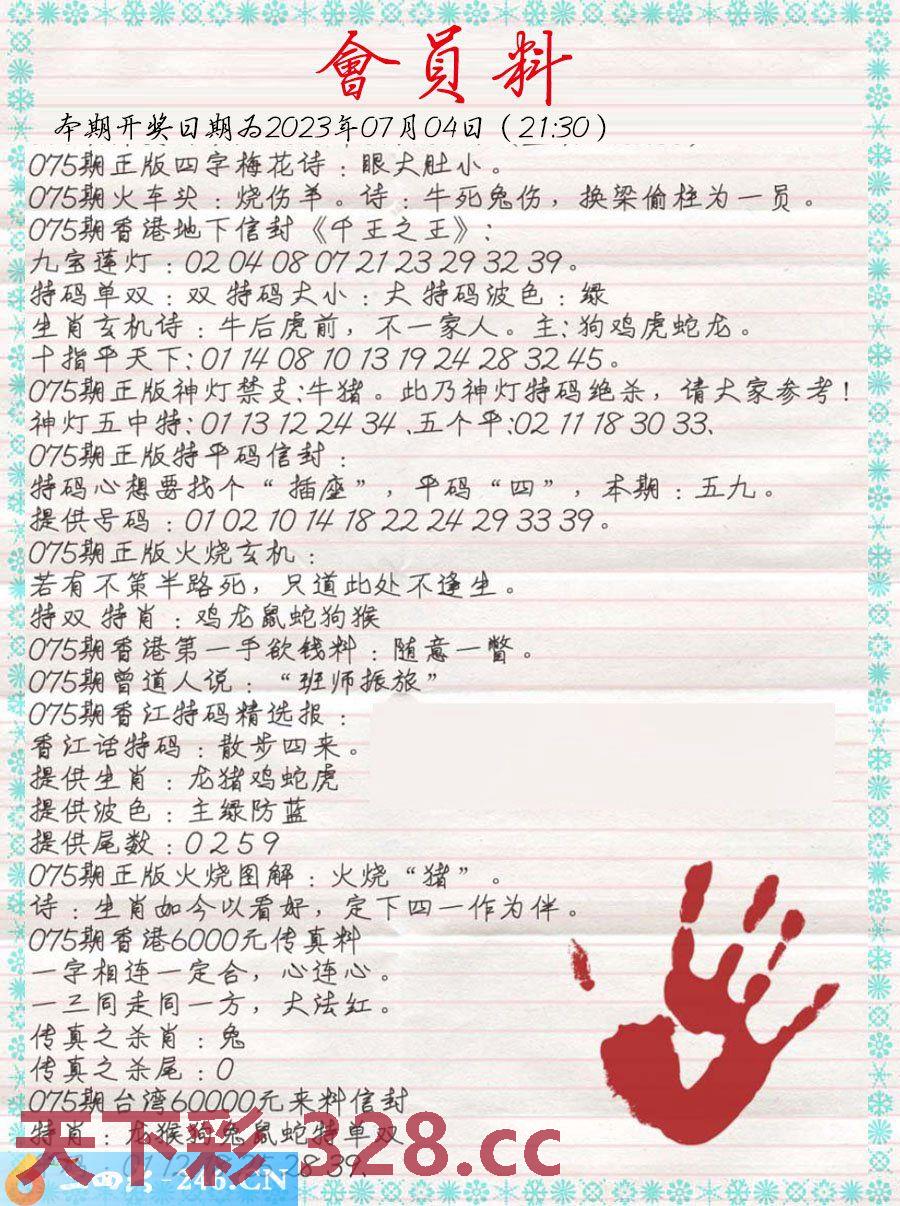 會員料
本期开奖日期为2023年07月04日（21:30）
075期正版四字梅花诗：眼大肚小。
075期火车头：烧伤羊。诗：牛死兔伤，换梁偷柱为一员。
075期香港地下信封《千王之王》：
九宝莲灯：02 04 08 07 21 23 29 32 39。
特码单双：双 特码大小：大 特码波色：绿
生肖玄机诗：牛后虎前，不一家人。主：狗鸡虎蛇龙。
十指平天下：01 14 08 10 13 19 24 28 32 45。
075期正版神灯禁支：牛猪。此乃神灯特码绝杀，请大家参考！
神灯五中特：01 13 12 24 34、五个平：02 11 18 30 33、
075期正版特平码信封：
特码心想要找个“插座”，平码“四”，本期：五九。
提供号码：01 02 10 14 18 22 24 29 33 39。
075期正版火烧玄机：
若有不策半路死，只道此处不逢生。
特双 特肖：鸡龙鼠蛇狗猴
075期香港第一手欲钱料：随意一瞥。
075期曾道人说：“班师振旅”
075期香江特码精选报：
香江话特码：散步四来。
提供生肖：龙猪鸡蛇虎
提供波色：主绿防蓝
提供尾数：0 2 5 9
075期正版火烧图解：火烧“猪”。
诗：生肖如今以看好，定下四一作为伴。
075期香港6000元传真料
一字相连一定合，心连心。
一三同走同一方，大法红。
传真之杀肖：兔
传真之杀尾：0
075期台湾60000元来料信封
特肖：龙猴狗兔鼠蛇特单双
28 39.
天下彩 328.cc
-246.CN